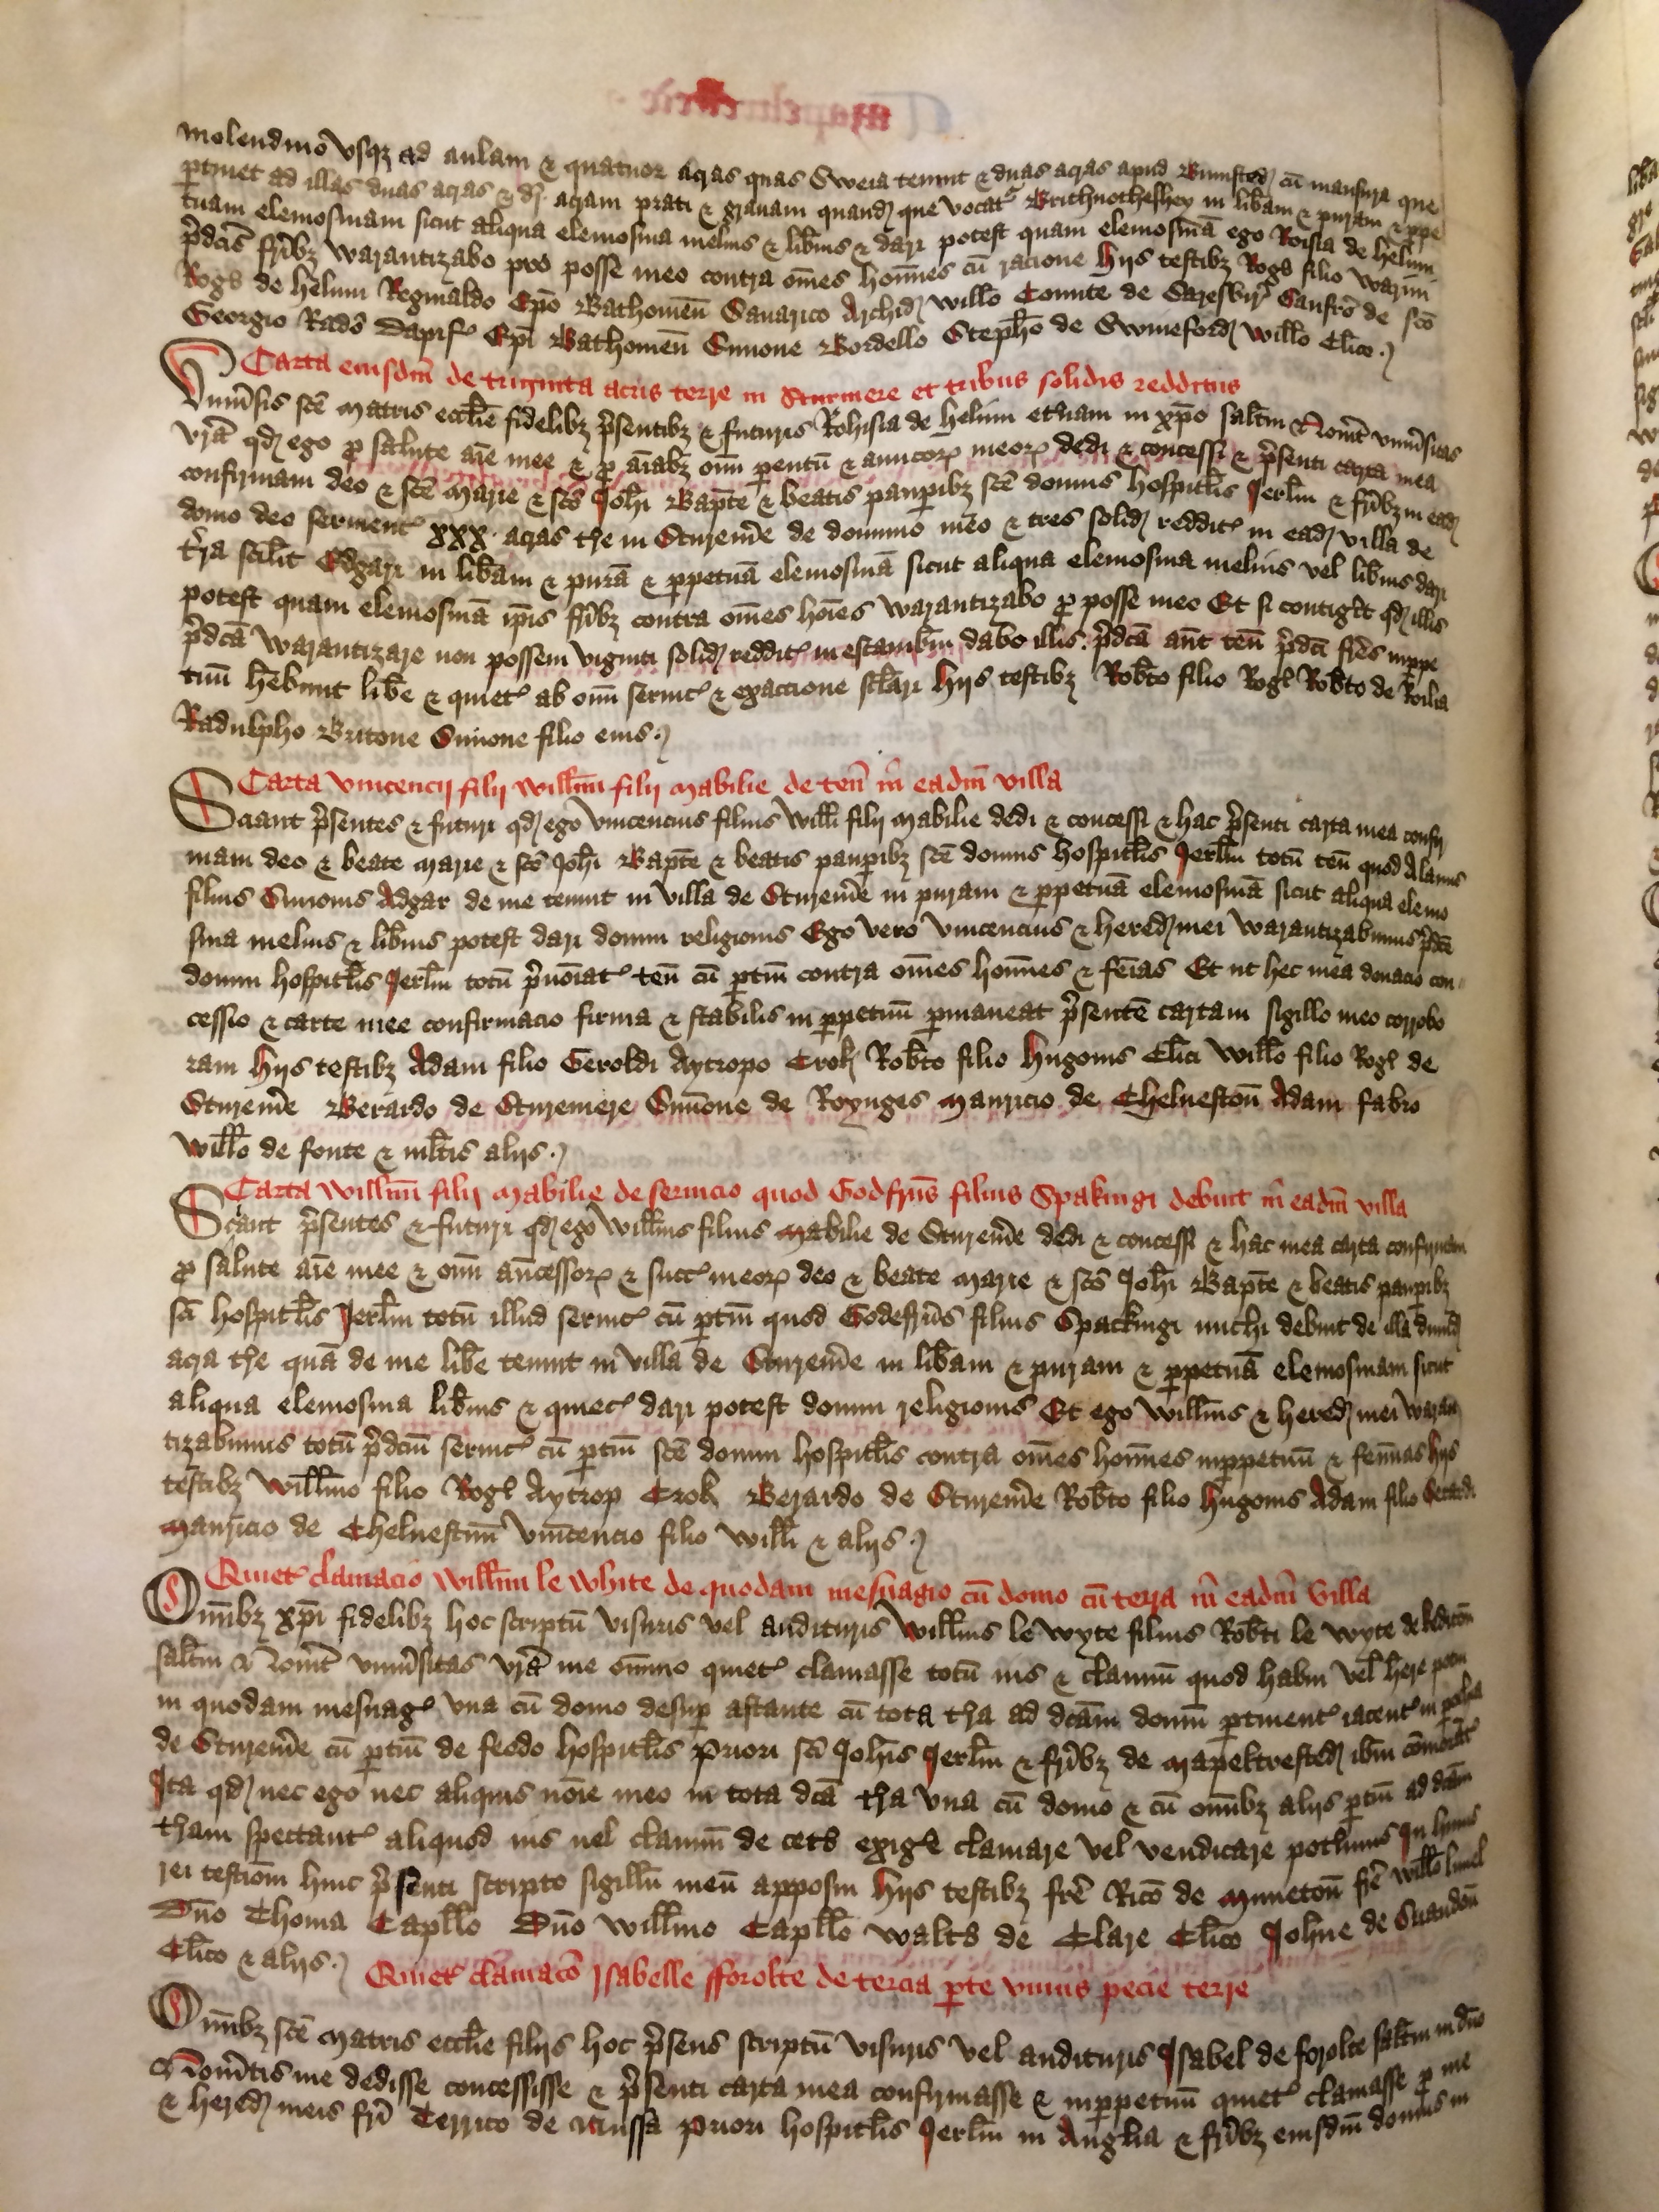 molendino usqz ad aulam & quatuor acras quas Sweia tenuit & duas acras apud Bumsted cū mansura que
ptinet ad illas duas acras & di acram prati & gravam quand que vocat Brichnotheshey in libam & puram & ppe
tuam elemosinam sicut aliqua elemosina melius & libius & dari potest quam elemosinā ego Roisia de helium
pdcis fribz warantizabo pro posse meo contra oēs hoīnes cū racione hijs testibz Rogo filio Warini
Rogo de helium Reginaldo Epo Bathonien Savarico Archid Willo Comite de Saresbir Gaufro de sco
Georgio Rado dapif Epi Bathonien Simone Bordello Stepho de Swineford Willo Clico
Carta eiusdm de triginta acris terre in Sturmere et tribus solidis redditus
Univsis sce matris ecclie fidelibz psentibz & futuris Rohisia de helium etnam in xpo saltm Novit univsitas
vrā qd ego p salute aīe mee & p aīabz oīm pentū & amicor meor dedi & concessi & psenti carta mea
confirmam deo & sce Marie & sco Johi Bapte & beatis paupibz sce domus hospitlis Jerlm & fribz in ead
domo deo servient xxx acras tre in Sturemere de dominio meo & tres solid reddit in ead villa de
tra scilit Edgari in libam & purā & ppetuā elemosinā sicut aliqua elemosina melius vel libius dari
potest quam elemosinā ipis fribz contra oēs hoīes warantizabo p posse meo Et si contigit qd illis
pdcā warantizare non possem viginti solid reddit in estambiū dabo illis pdcā aut ten pdci fres inppe
tuū hebunt libe & quiet ab oīm servic & exaccione sclari hijs testibz Robto filio Rogi Robto de Roilia
Radulpho Britone Simone filio eius
Carta vincencij filij willmi filij Mabilie de ten in eadm villa
Sciant psentes & futuri qd ego vincencius filius Willi filij Mabilie dedi & concessi & hac psenti carta mea confir
mam deo & beate Marie & sco Johi Bapte & beatis paupibz sce domus hospitlis Jerlm totū ten quod Alanus
filius Simonis Adgar de me tenuit in villa de Sturemere in puram & ppetuā elemosinā sicut aliqua elemo
sina melius & libius potest dari domui religionis Ego vero Vincencius & hered mei warantizabimus pdce
domui hospitlis Jerlm totū pnoīat ten cū ptin contra oēs hoīnes & feīas Et ut hec mea donacio con
cessio & carte mee confirmacio firma & stabilis in ppetuū pmaneat psentē cartam sigillo meo corrobo
ram hijs testibz Adam filio Geroldi Aytropo Crok Robto filio Hugonis Clici Willo filio Rogi de
Sturemere Berardo de Sturemere Simone de Roynges Mauricio de Chelveston Adam fabro
Willo de fonte & mltis alijs
Carta willmi filij Mabilie de servicio quod Godfrus filius Spakingi debuit in eadm villa
Sciant psentes & futuri qd ego Willmus filius Mabilie de Sturemere dedi & concessi & hac mea carta confirmam
p salute aīe mee & oīm ancessor & succ meor deo & beate Marie & sco Johi Bapte & beatis paupibz
sci hospitlis Jerlm totū illud servic cū ptin quod Godefrus filius Spackingi michi debuit de illa dimid
acra tre quā de me libe tenuit in villa de Sturemere in libam & puram & ppetuā elemosinam sicut
aliqua elemosina libius & quiec dari potest domui religionis Et ego Willmus & hered mei waran
tizabimus totū pdcm servic cū ptin sce domui hospitlis contra oēs hoīnes inppetuū & feīnas hijs
testibz Willmo filio Rogi Aytrop Crok Berardo de Sturemere Robto filio Hugonis Adam filio Gerardi
Mauricio de Chelvestun Vincencio filio Willi & alijs
Quiet clamacio Willmi le White de quodam mesuagio cū domo cū terra in eadm villa
Omibz xpi fidelibz hoc scriptū visuris vel audituris Willmus le Wyte filius Robti le Wyte de
saltm Novit univsitas vrā me omnino quiet clamasse totū ius & clamiū quod habui vel here potui
in quodam mesuag una cū domo desup astante cū tota tra ad dcam domū ptinent iacent in pochia
de Sturemere cū ptin de feodo hospitlis Priori sci Johis Jerlm & fribz de Mapeltrested ibm cōmorāt
Ita qd nec ego nec aliquis noīe meo in tota dca tra una cū domo & cū omibz alijs ptin ad dcam
tram spectant aliquod ius vel clamiū de cetō exige clamare vel vendicare potimus In huius
rei testiom huic psenti scripto sigillū meū apposui hijs testibz fre Rico de Mineton fre Willo
Dno Thoma Capllo Dno Willmo Capllo Walto de Clare Clico Johne de
Clico & alijs
Quiet clamaco Isabelle fforolte de tercia pte unius pecie terre
Omibz sce matris ecclie filijs hoc psens scriptū visuris vel audituris Isabel de forolte saltm in dno
Novitis me dedisse concessisse & psenti carta mea confirmasse & inppetuū quiet clamasse p me
& hered meis fri Terrico de Nussa Priori hospitlis Jerlm in Anglia & fribz eiusdm domus in